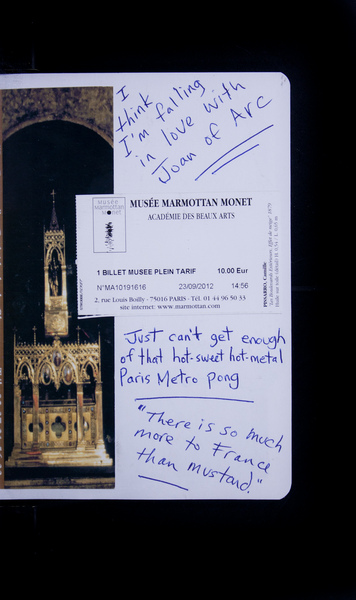 I
think
I'm falling
in love with
Joan of Arc
MUSÉE
MARMOTTAN
MONET
MUSÉE MARMOTTAN MONET
ACADÉMIE DES BEAUX ARTS
1 BILLET MUSEE PLEIN TARIF 10.00 Eur
N°MA10191616 23/09/2012 14:56
2, rue Louis Boilly - 75016 PARIS - Tél. 01 44 96 50 33
site internet: www.marmottan.com
PISSARRO, Camille
Just can't get enough
of that hot-sweet hot-metal
Paris Metro pong
"There is so much
more to France
than mustard."